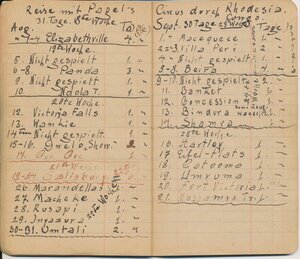 Reise mit Pagel's
31 Tage. 8te Woche.
Aug. Tage
1-4 Elizabethville 4.
19te Woche.
5 Nicht gespielt 1.
6-8 Panda 3.
9. Nicht gespielt 1.
10. Ndola T. 1.
20te Woche.
12. Victoria Falls 1.
13. Wankie 1.
14ten Nicht gespielt. 1.
15-16. Gwelo, Show. 2
17. Que Que 1.
21te W.
Salisburg
26. Marandellas 1.
27. Macheke 1.
28. Rusapi 1.
29. Inyazura 1.
30-31. Umtali 2.
22te Woche
Circus durch Rhodesia.
Congo.
Sept. 30 Tage Tage
1. Macequece 1.
2.-3. Villa Peri 2
4. Nicht gespielt 1.
5-8. Beira
Nicht gespielt
11. Banket 1.
12. Concession
13. Bindura
14. Shamva
25te Woche.
16. Hartley 1.
17. Eifel-Flats 1.
18. Gatooma 1.
19. Umvuma 1.
20. Fort Victoria 1.
21.